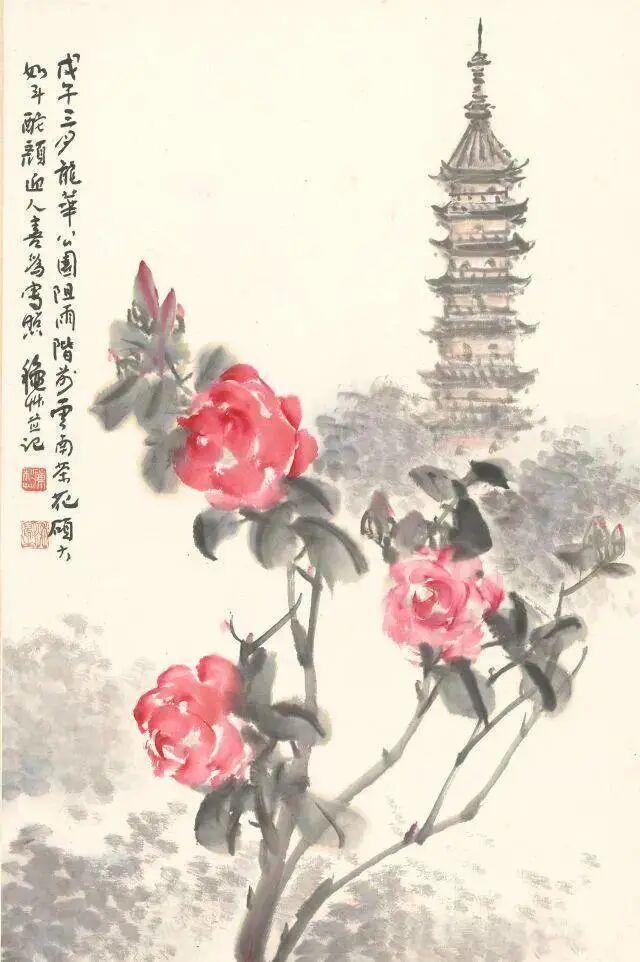 戊午三月龍華公園阻雨階前雲南茶花碩大
如斗酡顏迎人喜為寫照 穐草並記